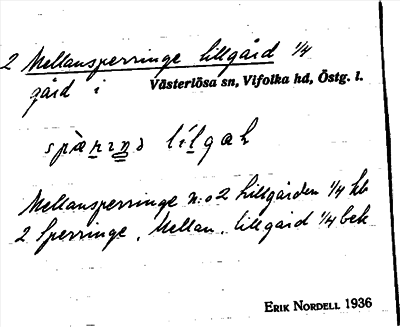 2 Mellansperringe lillgård 1/4
gård i Västerlösa sn, Vifolka hd, Östg. l.
spàrıŋə lílgaḥ
Mellansperringe n:o 2 Lillgården 1/4 hb
2 Sperringe, Mellan-, lillgård 1/4 bek
ERIK NORDELL 1936